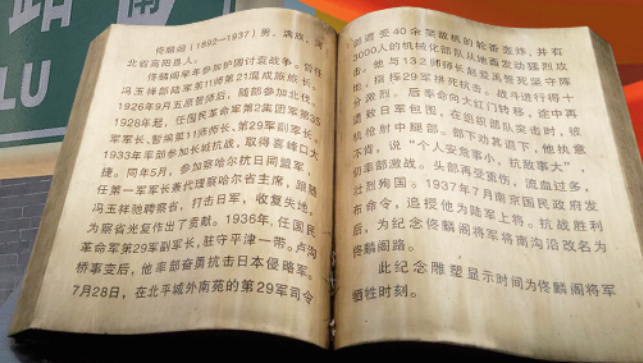 路
南
LU
佟麟阁（1892—1937）男，满族，河
北省高阳县人。
佟麟阁早年参加护国讨袁战争。曾任
冯玉祥部陆军第11师第21混成旅旅长。
1926年9月五原誓师后，随部参加北伐。
1928年起，任国民革命军第2集团军第35
军军长、暂编第11师师长、第29军副军长。
1933年率部参加长城抗战，取得喜峰口大
捷。同年5月，参加察哈尔抗日同盟军，
任第一军军长兼代理察哈尔省主席，跟随
冯玉祥驰骋察省，打击日军，收复失地，
为察省光复作出了贡献。1936年，任国民
革命军第29军副军长，驻守平津一带。卢沟
桥事变后，他率部奋勇抗击日本侵略军。
7月28日，在北平城外南苑的第29军司令
部遭受40余架敌机的轮番轰炸，并有
3000人的机械化部队从地面发动猛烈攻
击。他与132师师长赵登禹誓死坚守阵
地，指挥29军拼死抗击。战斗进行得十
分激烈。后奉命向大红门转移，途中再
遭敌日军包围，在组织部队突击时，被
机枪射中腿部。部下劝其退下，他执意
不肯，说“个人安危事小，抗敌事大”，
仍率部激战。头部再受重伤，流血过多，
壮烈殉国。1937年7月南京国民政府发
布命令，追授他为陆军上将。抗战胜利
后，为纪念佟麟阁将军将南沟沿改名为
佟麟阁路。
此纪念雕塑显示时间为佟麟阁将军
牺牲时刻。